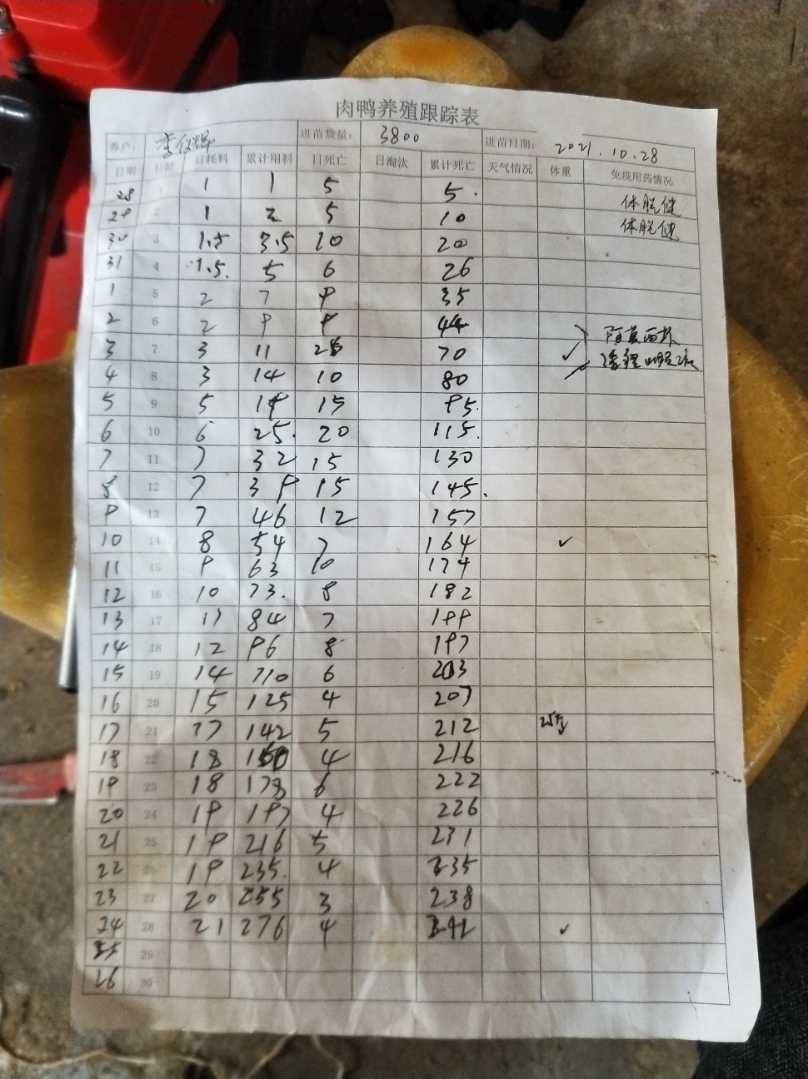 肉鸭养殖跟踪表
养户： 进苗数量： 3800 进苗日期： 2021.10.28
日期 日龄 日耗料 累计用料 日死亡 日淘汰 累计死亡 天气情况 体重 免疫用药情况
28 1 1 1 5 5.
29 2 1 2 5 10
30 3 1.5 3.5 10 20
31 4 1.5. 5 6 26
1 5 2 7 9 35
2 6 2 9 9 44
3 7 3 11 70 ✓
4 8 3 14 10 80
5 9 5 19 15 95.
6 10 6 25. 20 115.
7 11 7 32 15 130
8 12 7 39 15 145.
9 13 7 46 12 157
10 14 8 54 7 164 ✓
11 15 9 63 10 174
12 16 10 73. 8 182
13 17 11 84 7 189
14 18 12 96 8 197
15 19 14 110 6 203
16 20 15 125 4 207
17 21 17 142 5 212
18 22 18 160 4 216
19 23 18 178 6 222
20 24 19 197 4 226
21 25 19 216 5 231
22 26 19 235. 4 235
23 27 20 255 3 238
24 28 21 276 4 242 ✓
25 29
26 30